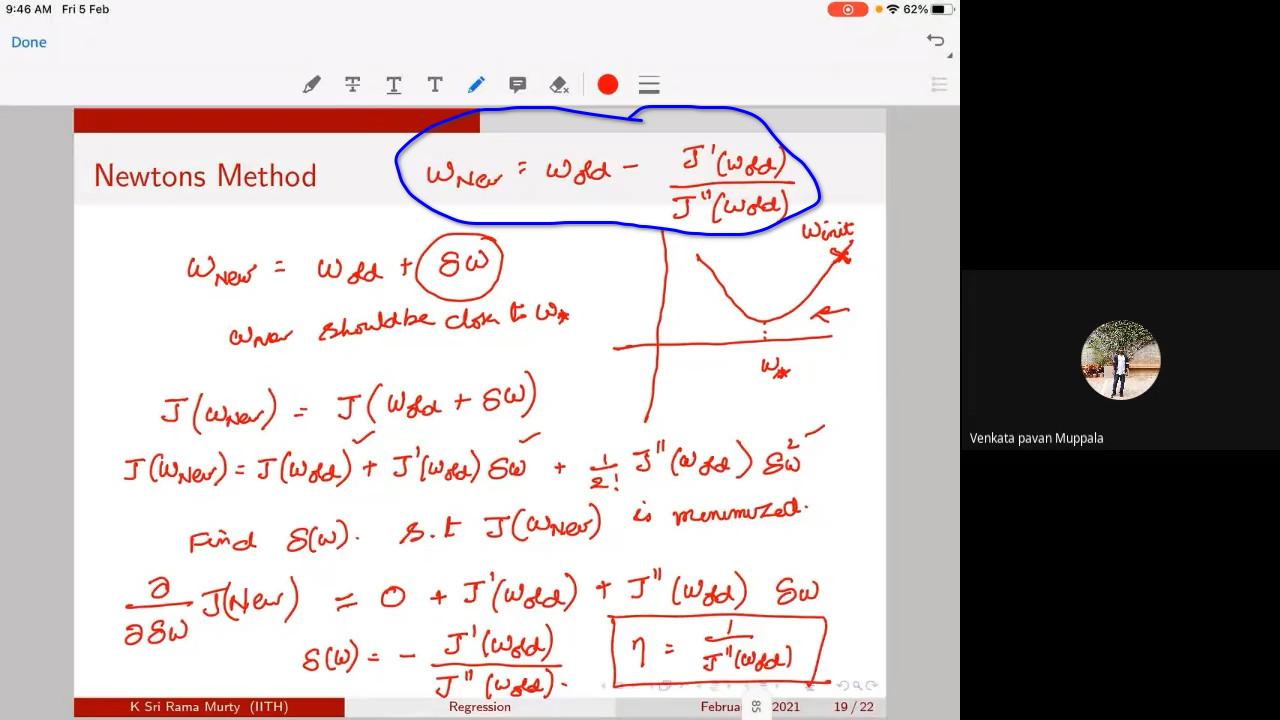 9:46 AM Fri 5 Feb
62%
Done
Newtons Method
ω_New = ω_old − J'(ω_old) / J''(ω_old)
ω_New = ω_old + δω
ω_init
ω_New should be close to ω_*
ω_*
J(ω_New) = J(ω_old + δω)
J(ω_New) = J(ω_old) + J'(ω_old) δω + 1/2! J''(ω_old) δω²
Find δ(ω). s.t J(ω_New) is minimized.
∂/∂δω J(New) = 0 + J'(ω_old) + J''(ω_old) δω
δ(ω) = − J'(ω_old) / J''(ω_old).
η = 1 / J''(ω_old)
K Sri Rama Murty (IITH) Regression Februa 85 2021 19 / 22
Venkata pavan Muppala